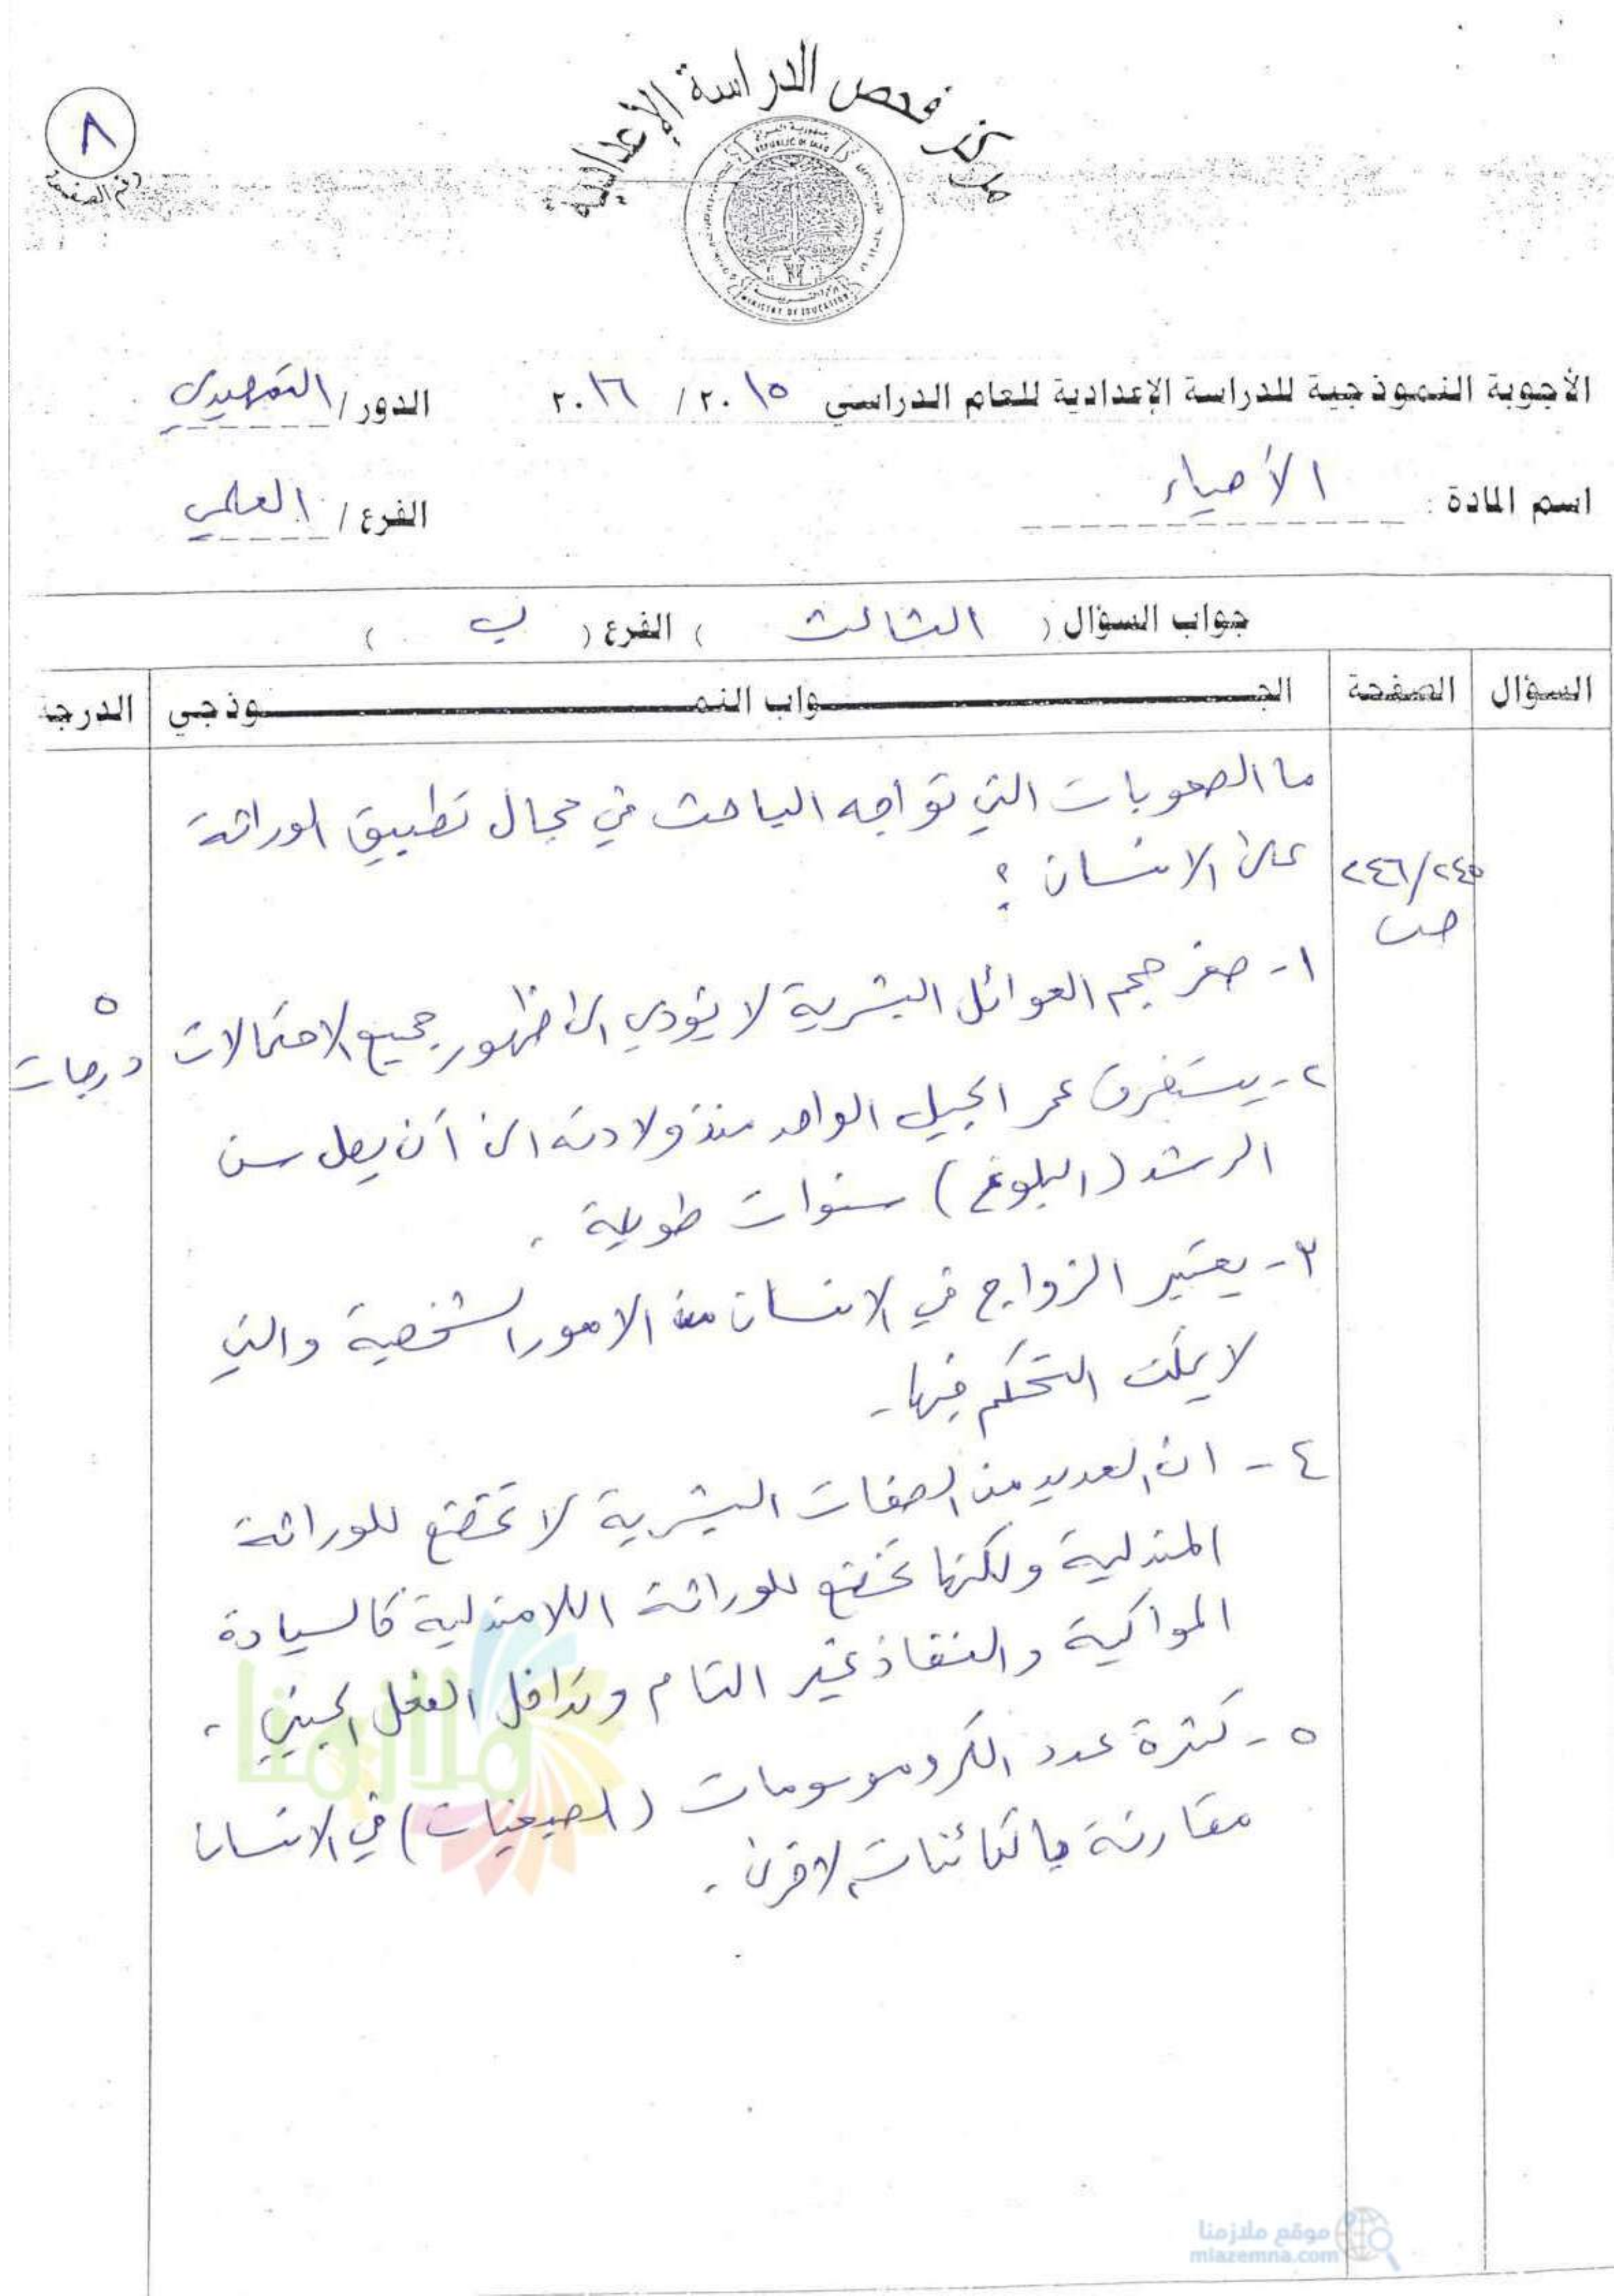 مركز فحص الدراسة الإعدادية
٨
رقم الصفحة
REPUBLIC OF IRAQ
MINISTRY OF EDUCATION
الأجوبة النموذجية للدراسة الإعدادية للعام الدراسي ٢٠١٥ / ٢٠١٦ الدور / التمهيدي
اسم المادة : الأحياء الفرع / العلمي
جواب السؤال ( الثالث ) الفرع ( ب )
السؤال الصفحة الجـــواب النمـــوذجي الدرجة
ما الصعوبات التي تواجه الباحث في مجال تطبيق الوراثة
على الانسان ؟
٢٤٥/٢٤٦
ص
١- صغر حجم العوائل البشرية لا يؤدي الى ظهور جميع الاحتمالات
٥
درجات
٢- يستغرق عمر الجيل الواحد منذ ولادته الى أن يصل سن
الرشد (البلوغ) سنوات طويلة .
٣- يعتبر الزواج في الانسان من الامور الشخصية والتي
لا يمكن التحكم فيها .
٤- ان العديد من الصفات البشرية لا تخضع للوراثة
المندلية ولكنها تخضع للوراثة اللامندلية كالسيادة
المواكبة والنفاذ غير التام وتداخل الفعل الجيني .
٥- كثرة عدد الكروموسومات (الصبغيات) في الانسان
مقارنة بالكائنات الاخرى .
ملازمنا
موقع ملازمنا
mlazemna.com